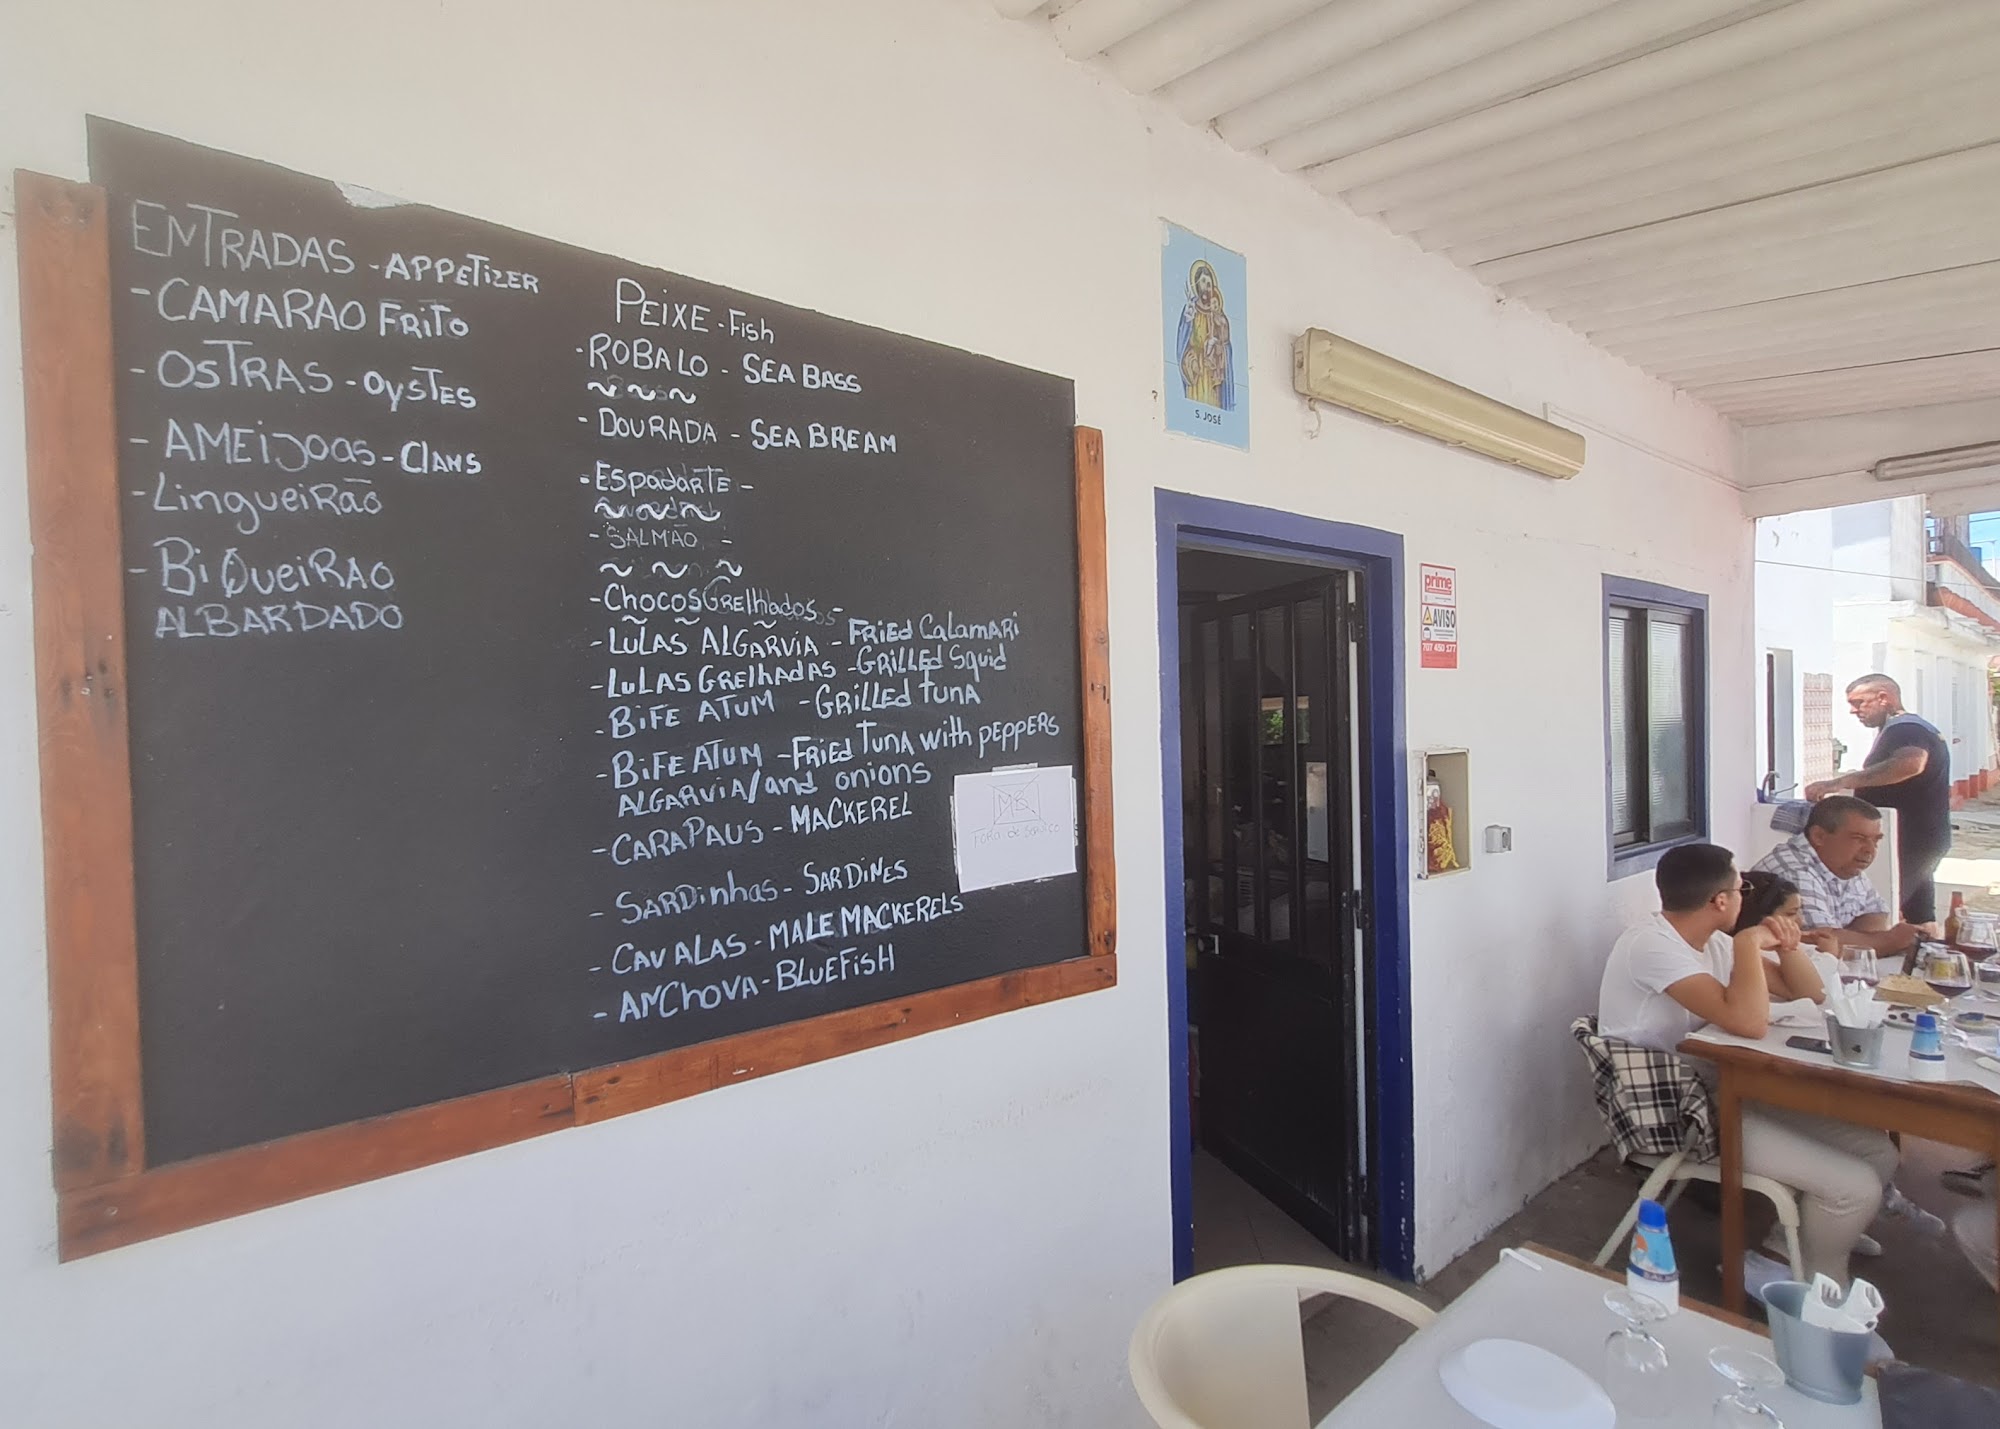 ENTRADAS - APPETIZER
- CAMARAO FRITO
- OSTRAS - OYSTES
- AMEIJOAS - CLAMS
- Lingueirão
- BiQueiRAO
ALBARDADO
PEIXE - Fish
- ROBALO - SEA BASS
~ ~ ~
- DOURADA - SEA BREAM
- EspadARTE -
~ ~ ~
- SALMÃO -
~ ~ ~
- ChocosGRelhados -
- LULAS ALGARVIA - FRIEd CalamARi
- LuLAS GRElhADAS - GRILLEd Squid
- BiFE ATUM - GRiLLEd tUNA
- BiFE ATUM - FRiEd TUNA with pEppERs
ALGARViA/and onions
- CARAPAUS - MACKEREL
- SARDinhas - SARDiNES
- CAVALAS - MALE MACKERELS
- ANChOVA - BLuEFiSH
MB
FORA de SERViÇO
S. JOSÉ
prime
AVISO
707 450 177